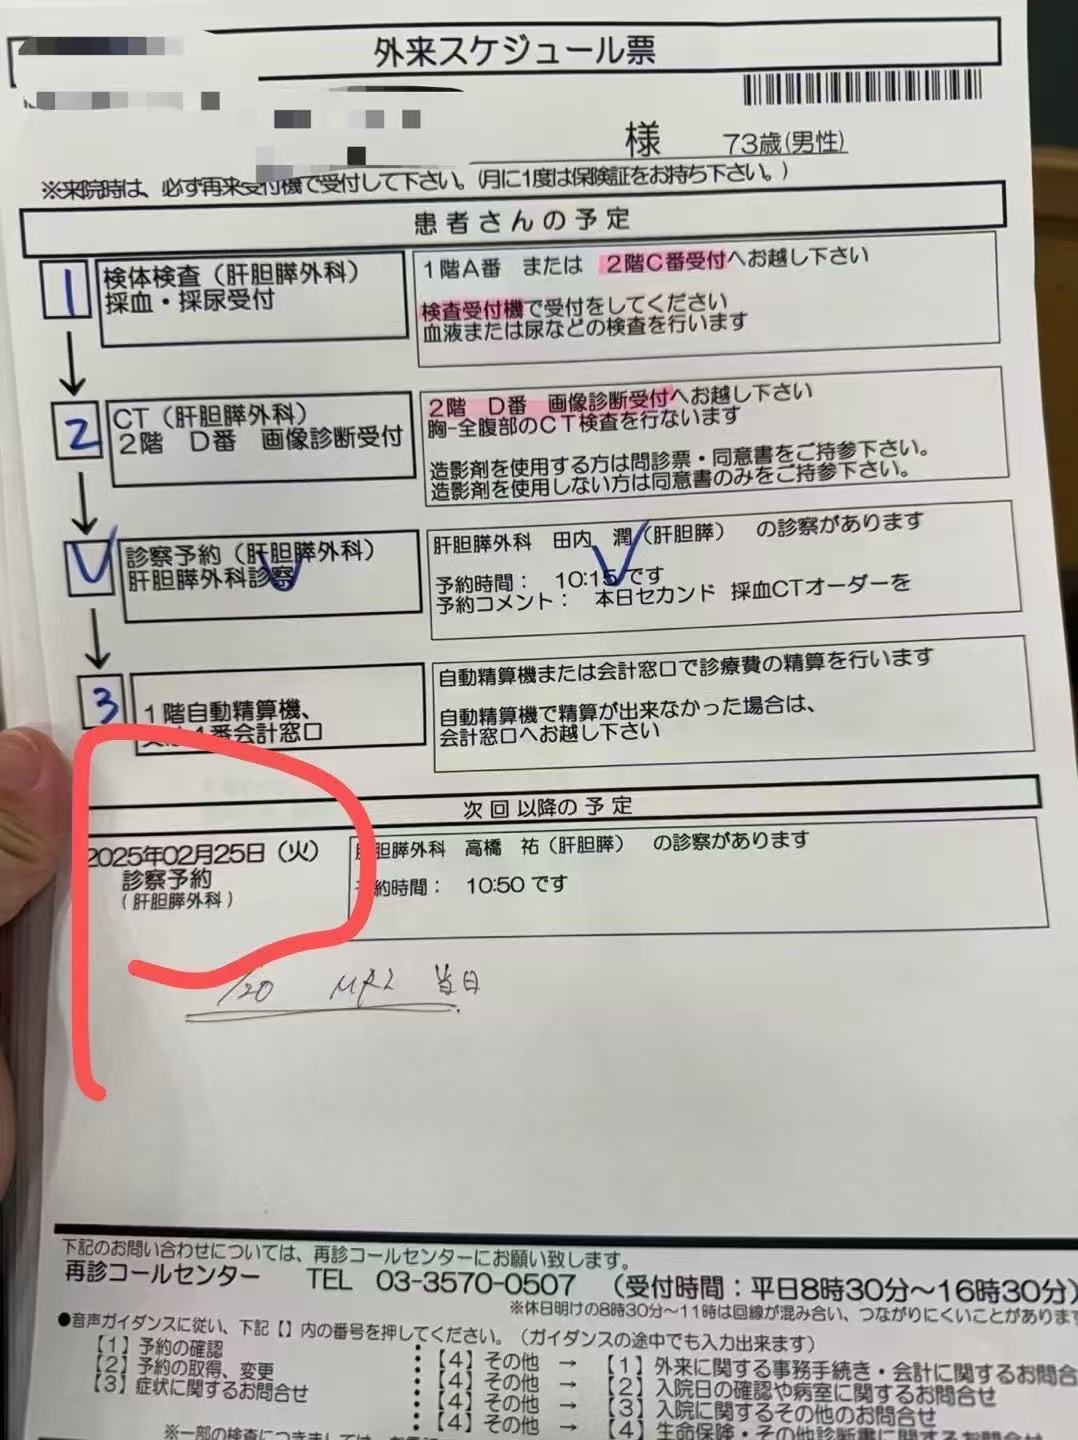 外来スケジュール票
様 73歳(男性)
※来院時は、必ず再来受付機で受付して下さい。(月に1度は保険証をお持ち下さい。)
患者さんの予定
1
検体検査(肝胆膵外科)
採血・採尿受付
1階A番 または 2階C番受付へお越し下さい
検査受付機で受付をしてください
血液または尿などの検査を行います
2
CT(肝胆膵外科)
2階 D番 画像診断受付
2階 D番 画像診断受付へお越し下さい
胸-全腹部のCT検査を行ないます
造影剤を使用する方は問診票・同意書をご持参下さい。
造影剤を使用しない方は同意書のみをご持参下さい。
診察予約(肝胆膵外科)
肝胆膵外科診察
肝胆膵外科 田内 潤(肝胆膵) の診察があります
予約時間: 10:15です
予約コメント: 本日セカンド 採血CTオーダーを
3
1階自動精算機、
4番会計窓口
自動精算機または会計窓口で診療費の精算を行います
自動精算機で精算が出来なかった場合は、
会計窓口へお越し下さい
次回以降の予定
2025年02月25日(火)
診察予約
(肝胆膵外科)
胆膵外科 高橋 祐(肝胆膵) の診察があります
約時間: 10:50です
/20 MRI 当日
下記のお問い合わせについては、再診コールセンターにお願い致します。
再診コールセンター TEL 03-3570-0507 (受付時間:平日8時30分~16時30分)
※休日明けの8時30分~11時は回線が混み合い、つながりにくいことがあります
●音声ガイダンスに従い、下記【】内の番号を押してください。(ガイダンスの途中でも入力出来ます)
【1】予約の確認
【2】予約の取得、変更
【3】症状に関するお問合せ
【4】その他 → 【1】外来に関する事務手続き・会計に関するお問合
【4】その他 → 【2】入院日の確認や病室に関するお問合せ
【4】その他 → 【3】入院に関するその他のお問合せ
【4】その他 → 【4】生命保険・その他診断書に関するお問合
※一部の検査につきましては、